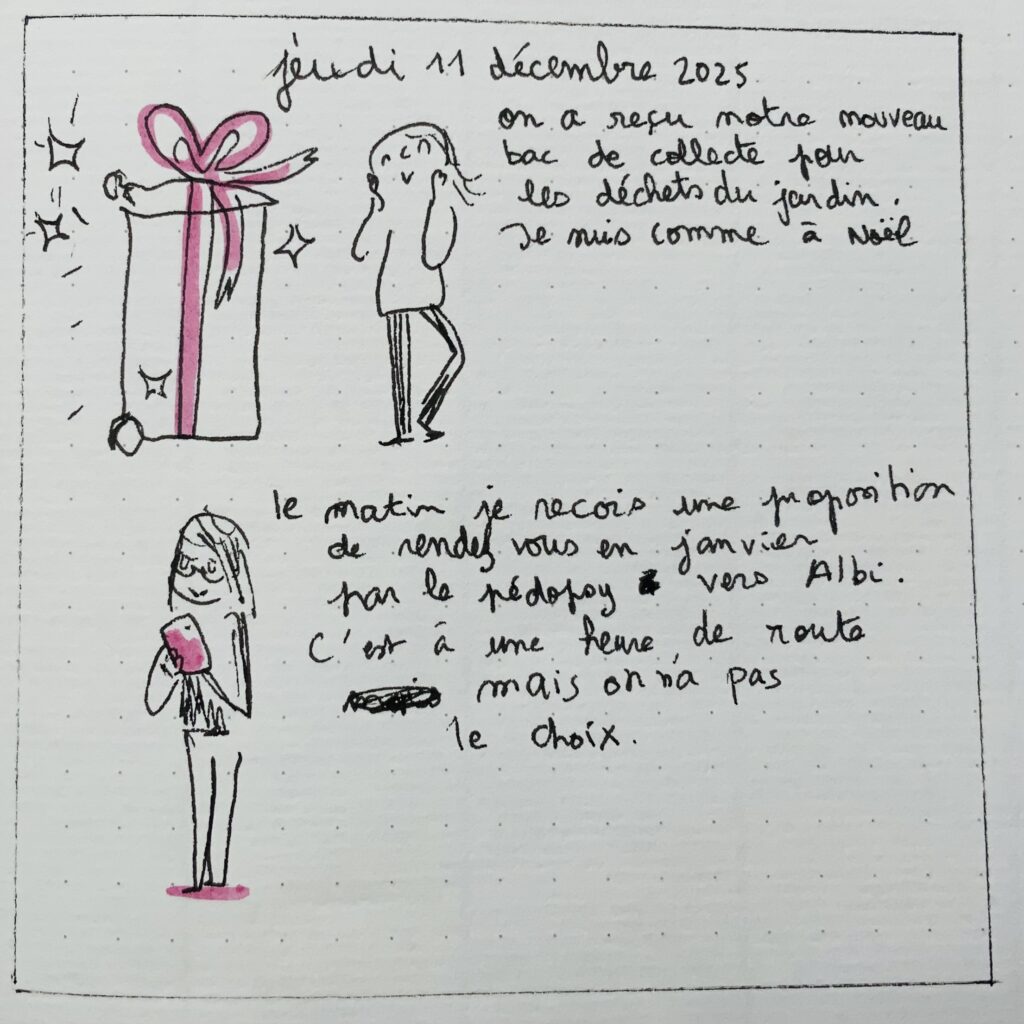 jeudi 11 décembre 2025
on a reçu notre nouveau
bac de collecte pour
les déchets du jardin.
Je suis comme à Noël
le matin je recois une proposition
de rendez vous en janvier
par le pédopsy vers Albi.
C'est à une heure de route
mais on n'a pas
le choix.